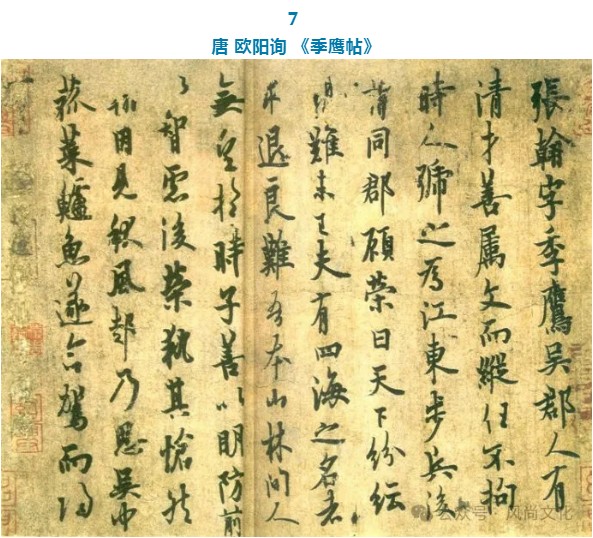 7
唐 欧阳询 《季鹰帖》
張翰字季鷹吳郡人有
清才善属文而縱任不拘
時人號之為江東步兵後
謂同郡顧榮曰天下紛紜
禍難未已夫有四海之名者
求退良難吾本山林間人
無望於時子善以明防前
以智慮後榮執其愴然
翰因見秋風起乃思吳中
菰菜鱸魚遂命駕而歸
公众号·风尚文化